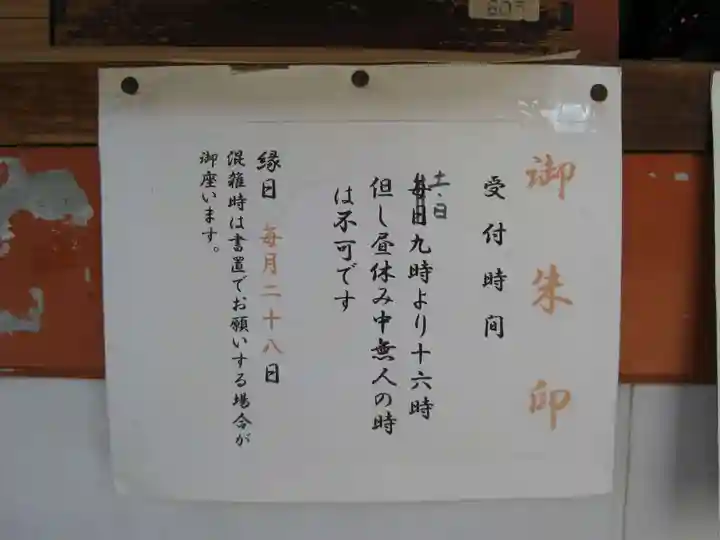 605
御朱印
受付時間
土・日
毎日九時より十六時
但し昼休み中無人の時
は不可です
縁日 毎月二十八日
混雑時は書置でお願いする場合が
御座います。